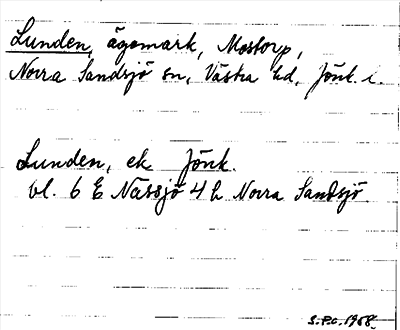 Lunden, ägomark, Mostorp,
Norra Sandsjö sn, Västra hd, Jönk. l.
Lunden, ek Jönk.
bl. 6 E Nässjö 4 h Norra Sandsjö.
S.P.C. 1968